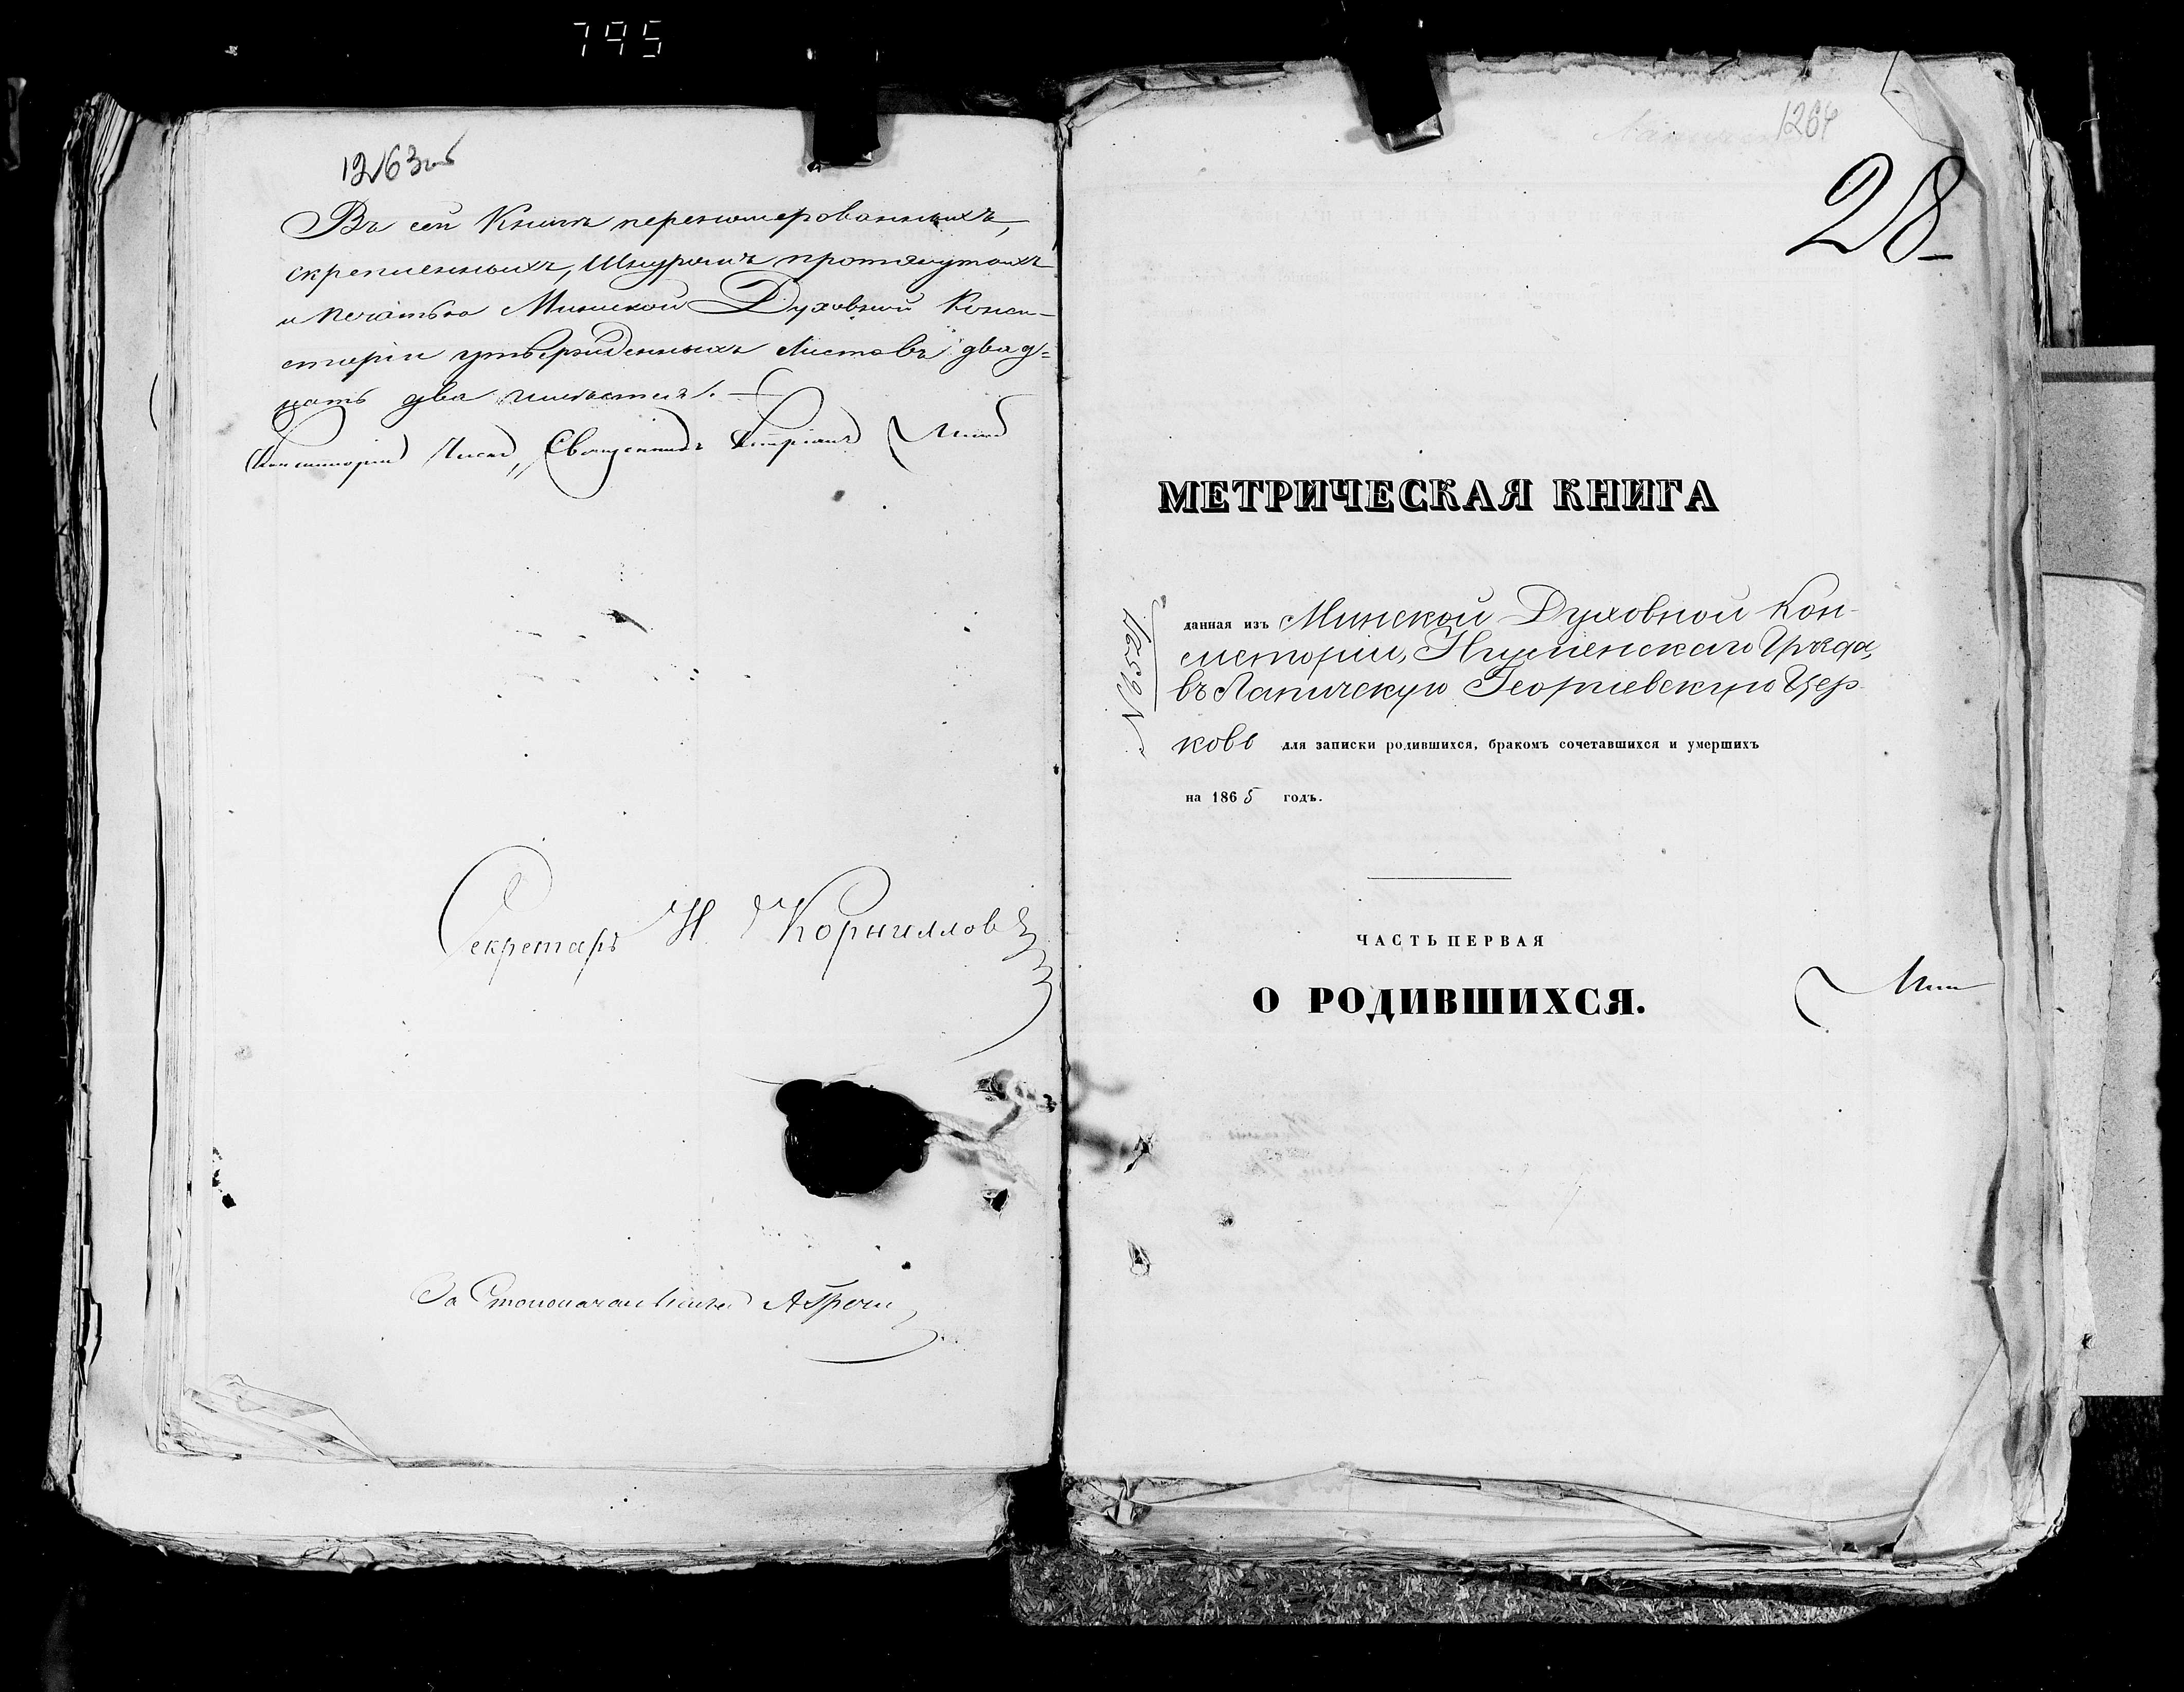 795
1263 об
Въ сей Книгѣ перенумерованныхъ,
скрепленныхъ, шнуромъ протянутыхъ
и печатью Минской Духовной Конси-
сторіи утвержденныхъ листовъ двад=
цать два числится.
Консисторіи Членъ, Священникъ
Секретарь Н. Корнилловъ
За Столоначальника
1264
28
МЕТРИЧЕСКАЯ КНИГА
№ 16591
данная изъ Минской Духовной Кон-
систоріи, Игуменскаго Уѣзда,
въ Лапичскую Георгіевскую Цер-
ковь для записки родившихся, бракомъ сочетавшихся и умершихъ
на 1865 годъ.
ЧАСТЬ ПЕРВАЯ
О РОДИВШИХСЯ.